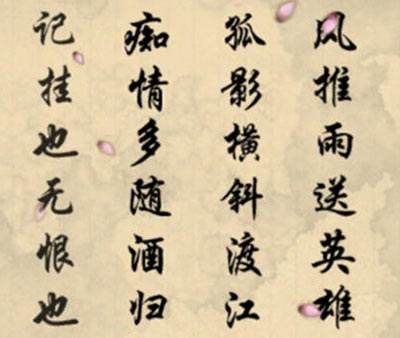 风推雨送英雄
孤影横斜渡江
痴情多随酒归
记挂也无恨也